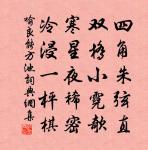 四角朱弦直
双桥小霓欹
寒星夜稀密
冷浸一枰棋
喻良能方池词典网集